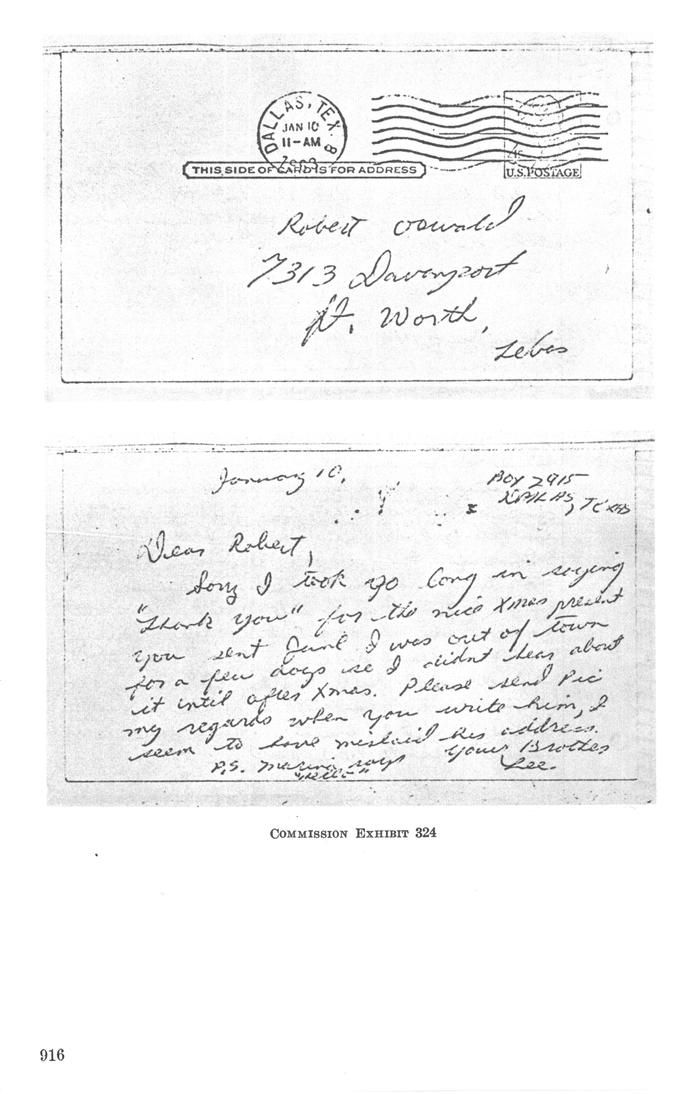 DALLAS, TEX.
JAN 10
11-AM
1963
8
THIS SIDE OF CARD IS FOR ADDRESS
4¢
U.S. POSTAGE
Robert Oswald
7313 Davenport
Ft. Worth,
Texas
January 10,
BOX 2915
DALLAS, TEXAS
Dear Robert,
Sorry I took so long in saying
"thank you" for the nice Xmas present
you sent June I was out of town
for a few days so I didnt hear about
it intil after Xmas. Please send Pic
my regards when you write him, I
seem to have mislaid his address.
Your Brother
Lee.
P.S. Marina says
"Hello"
COMMISSION EXHIBIT 324
916